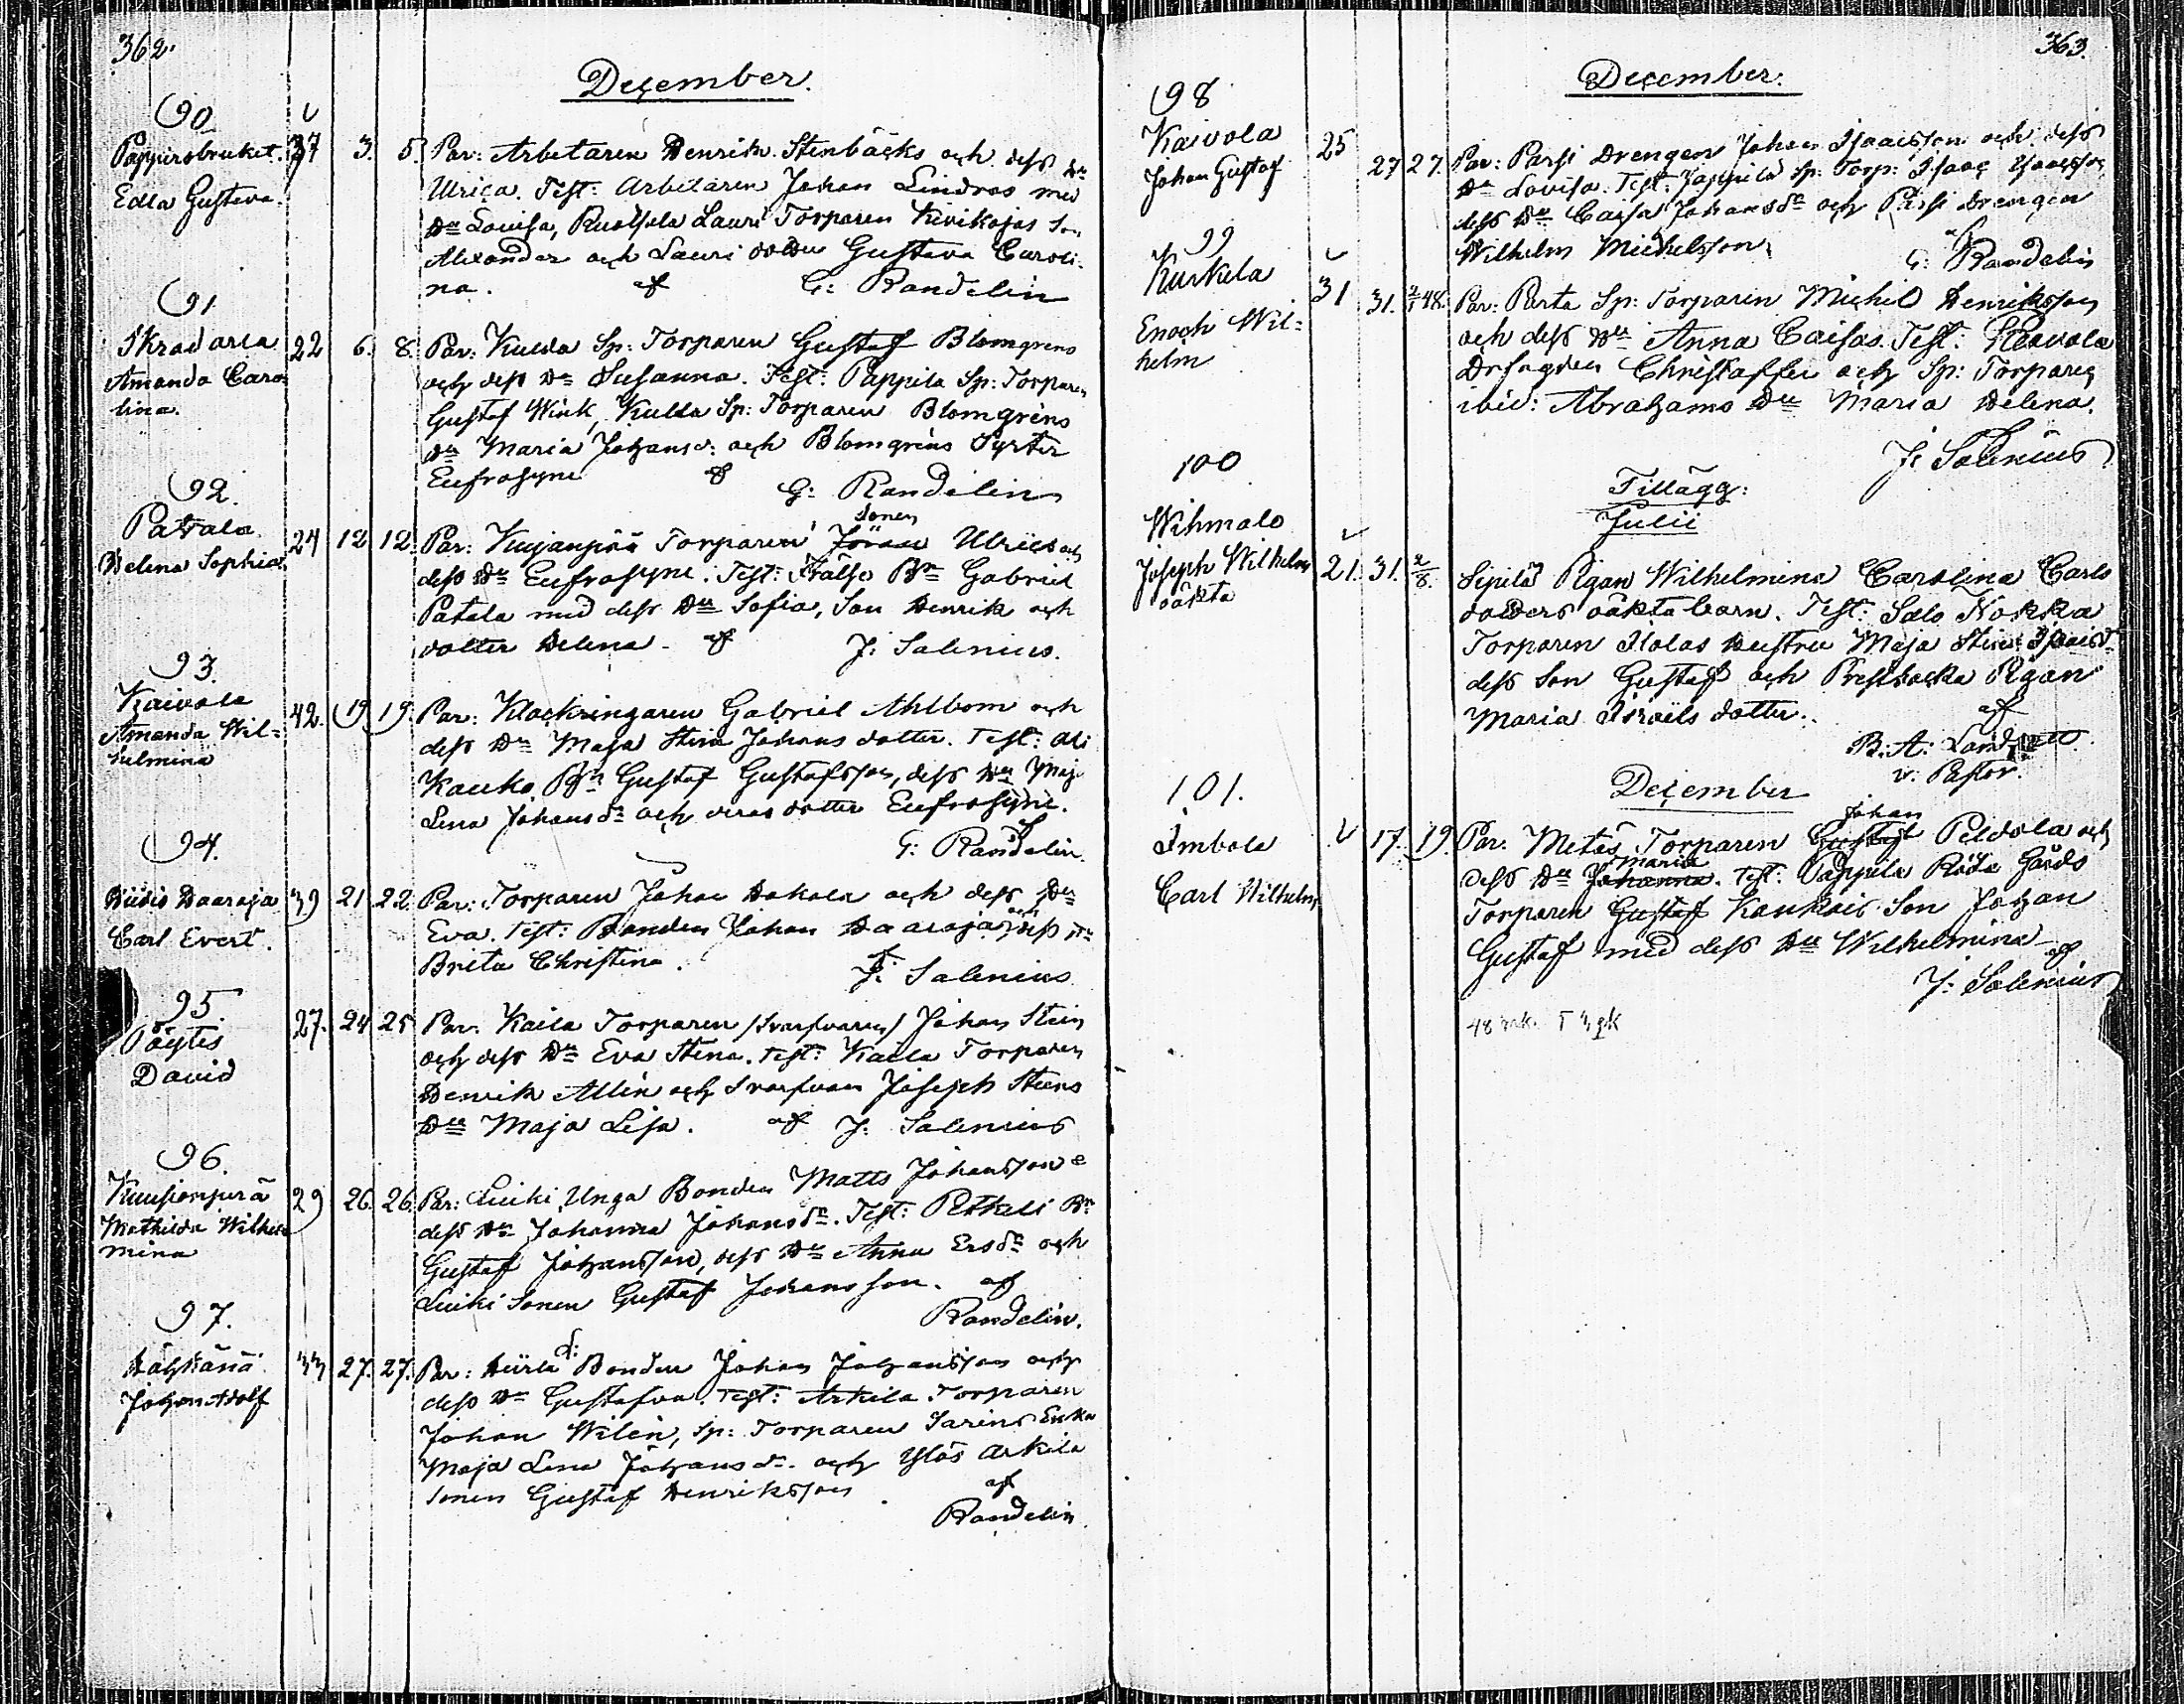 362.
December.
90
Pappersbruket. 37 3. 5. Par: Arbetaren Henrik Stenbäcks och dess Hu
Edla Gustava. Ulrica. Test: Arbetaren Johan Lindros med
Hu Lovisa, Lauri Torparen Kivikojas Son
Alexander och Lauri dottr Gustava Caroli-
na. af G: Randelin
91
Skradarla 22 6. 8. Par: Kulda Sp: Torparen Gustaf Blomgrens
Amanda Caro- och dess Hu Susanna. Test: Pappila Sp: Torparen
lina. Gustaf Wink, Kulda Sp: Torparen Blomgrens
Hu Maria Johansd: och Blomgrens Syster
Eufrosyne af G: Randelin
92.
Patala 24 12 12. Par: Kujanpää Torparen Sonen Ulrics och
Helena Sophia. dess Hu Eufrosyne. Test: Frälse Bn Gabriel
Patala med dess Hu Sofia, Son Henrik och
dotter Helena. af J: Salenius.
93.
Kaivola 42. 19. 19. Par: Klockringaren Gabriel Ahlbom och
Amanda Wil- dess Hu Maja Stina Johans dotter. Test: Ali
helmina Kauko Bn Gustaf Gustafsson, dess Hu Maja
Lena Johansdr och deras dotter Eufrosyne.
af G: Randelin.
94.
Haaroja 39 21 22. Par: Torparen Johan Hakala och dess Hu
Carl Evert. Eva. Test: Bonden Johan Haaroja och dess Hu
Brita Christina. af J: Salenius
95.
Pöytis 27. 24 25 Par. Kaila Torparen /Svarfvaren/ Johan Steen
David och dess Hu Eva Stina. Test: Kaila Torparen
Henrik Allén och Svarfvaren Joseph Steens
Hu Maja Lisa. af J: Salenius
96.
Kuusionperä 29 26. 26. Par: Luiki Unga Bonden Matts Johansson o
Mathilda Wilhel- dess Hu Johanna Johansdr. Test: Petkeli Bn
mina Gustaf Johansson, dess Hu Anna Ersdr och
Luiki Sonen Gustaf Johansson. af
Randelin.
97.
33 27. 27. Par: Bonden Johan Johansson och
Johan Adolf dess Hu Gustafva. Test: Arkila Torparen
Johan Wilén, Sp: Torparen Sarins Enka
Maja Lena Johansdr. och Ylös Arkila
Sonen Gustaf Henriksson af
Randelin
363.
December.
98
Kaivola 25 27 27. Par: Parsi Drengen Johan Isaacsson och dess
Johan Gustaf Hu Lovisa. Test: Pappila Sp: Torp: Isaac Isaacsson
dess Hu Caisa Johansdr och Parsi Drengen
Wilhelm Michelsson. af
G: Randelin
99
Kurkela 31 31. 2/1 48. Par: Perta Sp: Torparen Michel Henriksson
Enoch Wil- och dess Hu Anna Caisas. Test:
helm Drengen Christaffer och Sp: Torparen
ibid: Abrahams Hu Maria Helena.
J: Salenius
Tillägg:
Julii
100
Wihmalo
Joseph Wilhelm 21. 31. 2/8. Sipilä Pigan Wilhelmina Carolina Carls
oäkta dotters oäkta barn. Test: Salo Nokka
Torparen Hustru Maja Stina
dess Son Gustaf och Prestbacka Pigan
Maria Israëls dotter. af
B: A:
v: Pastor.
December
101.
Imbola 17. 19. Par: Metäs Torparen Gustaf Johan Peldola och
Carl Wilhelm dess Hu Johanna Maria. Test: Pappila Röda Gårds
Torparen Gustaf Kaukois Son Johan
Gustaf med dess Hu Wilhelmina af
J: Salenius